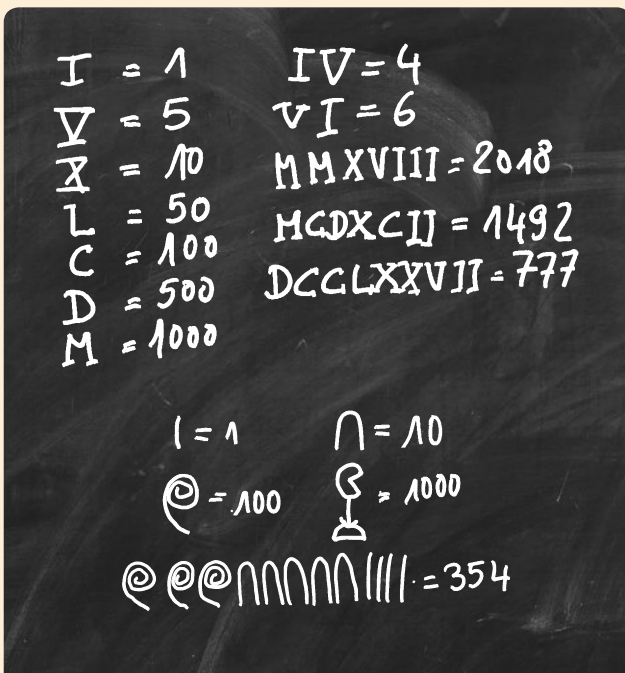 I = 1
V = 5
X = 10
L = 50
C = 100
D = 500
M = 1000
IV = 4
VI = 6
MMXVIII = 2018
MCDXCII = 1492
DCCLXXVII = 777
| = 1
∩ = 10
𓍢 = 100
𓆼 = 1000
𓍢𓍢𓍢∩∩∩∩∩|||| = 354